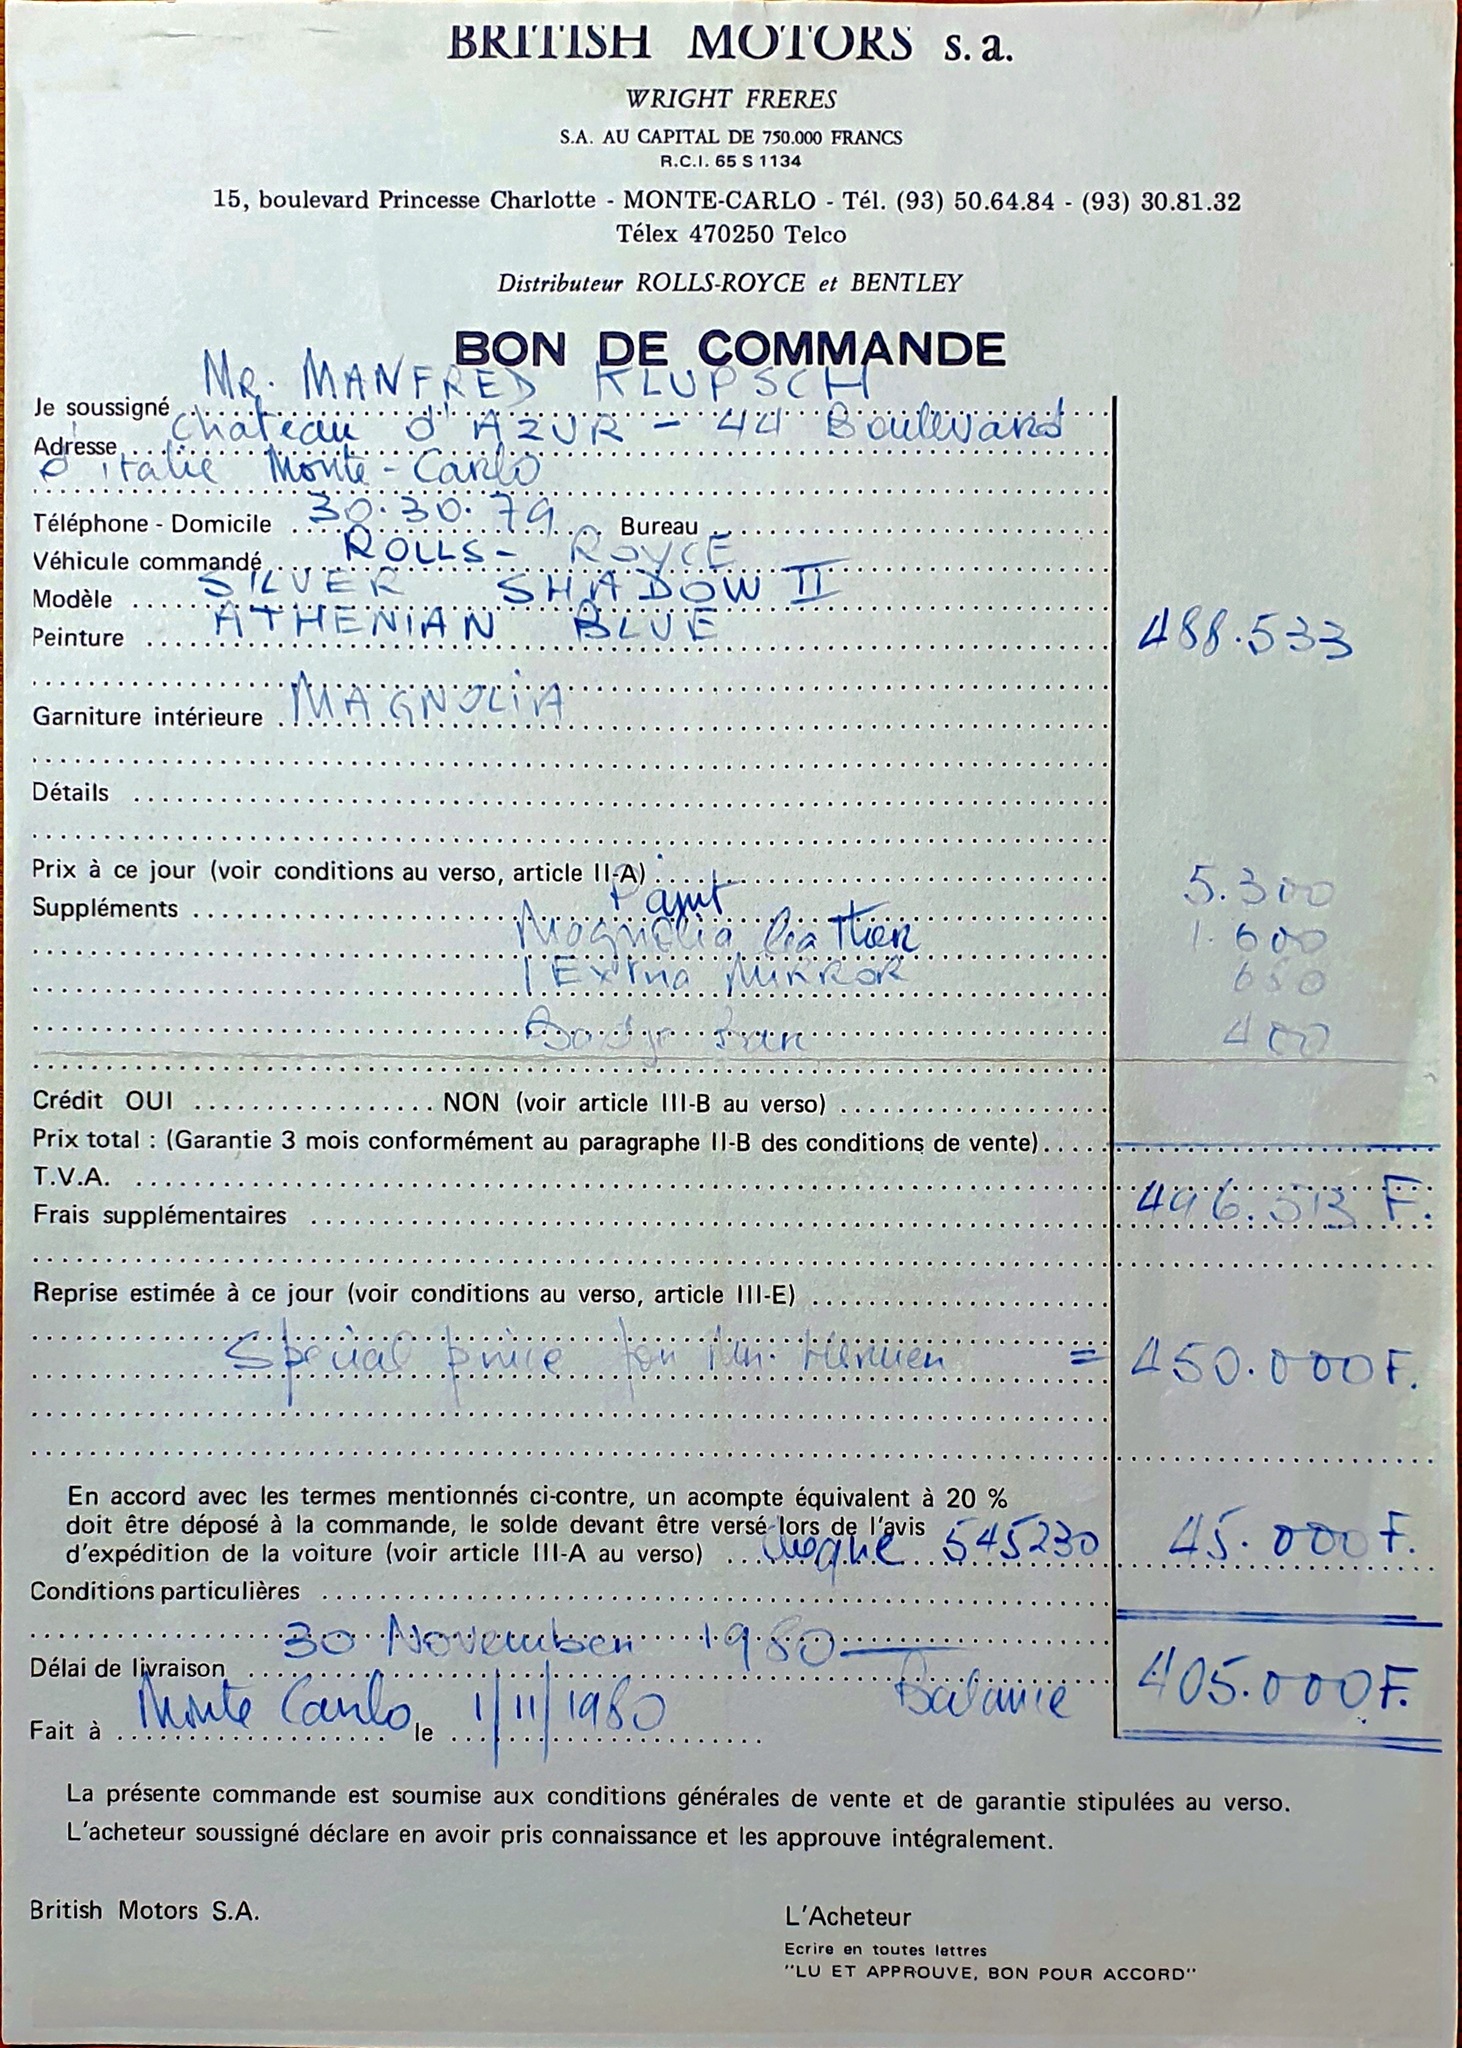 BRITISH MOTORS s.a.
WRIGHT FRERES
S.A. AU CAPITAL DE 750.000 FRANCS
R.C.I. 65 S 1134
15, boulevard Princesse Charlotte - MONTE-CARLO - Tél. (93) 50.64.84 - (93) 30.81.32
Télex 470250 Telco
Distributeur ROLLS-ROYCE et BENTLEY
BON DE COMMANDE
Je soussigné MR. MANFRED KLUPSCH
Adresse Château d'AZUR - 44 Boulevard
d'italie Monte-Carlo
Téléphone - Domicile 30.30.79 Bureau
Véhicule commandé ROLLS-ROYCE
Modèle SILVER SHADOW II
Peinture ATHENIAN BLUE 488.533
Garniture intérieure MAGNOLIA
Détails
Prix à ce jour (voir conditions au verso, article II-A)
Suppléments Paint 5.300
Magnolia leather 1.600
1 Extra MIRROR 680
Badge Bar 400
Crédit OUI NON (voir article III-B au verso)
Prix total : (Garantie 3 mois conformément au paragraphe II-B des conditions de vente)
T.V.A. 496.513 F.
Frais supplémentaires
Reprise estimée à ce jour (voir conditions au verso, article III-E)
Special price for Mr. = 450.000 F.
En accord avec les termes mentionnés ci-contre, un acompte équivalent à 20 %
doit être déposé à la commande, le solde devant être versé lors de l'avis
d'expédition de la voiture (voir article III-A au verso) cheque 545230 45.000 F.
Conditions particulières
Délai de livraison 30 November 1980
Balance 405.000 F.
Fait à Monte Carlo le 1/11/1980
La présente commande est soumise aux conditions générales de vente et de garantie stipulées au verso.
L'acheteur soussigné déclare en avoir pris connaissance et les approuve intégralement.
British Motors S.A.
L'Acheteur
Ecrire en toutes lettres
"LU ET APPROUVE, BON POUR ACCORD"